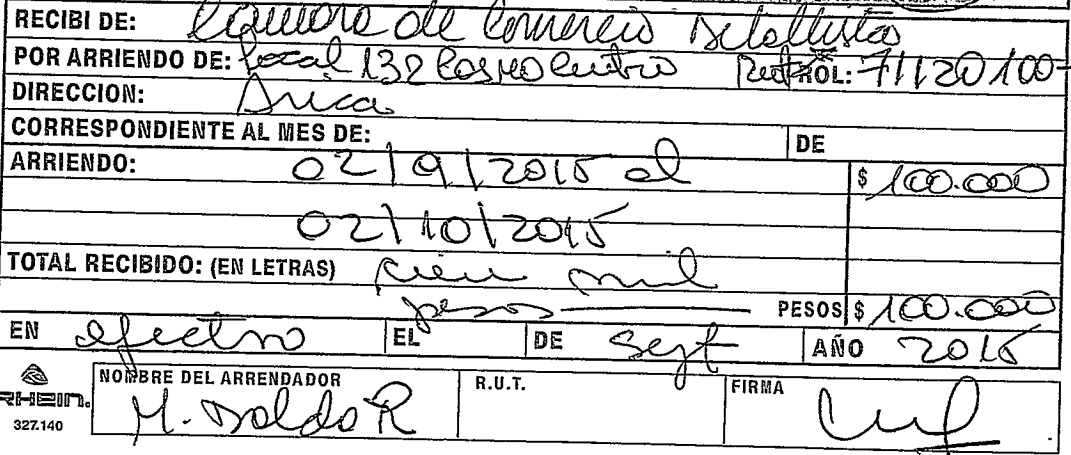 RECIBI DE: Camara de Comercio Detallista
POR ARRIENDO DE: Local 132 Cosmo Centro Rut ROL: 71120100-
DIRECCION: Arica
CORRESPONDIENTE AL MES DE: DE
ARRIENDO: 02/9/2015 al $ 100.000
02/10/2015
TOTAL RECIBIDO: (EN LETRAS) cien mil
pesos PESOS $ 100.000
EN efectivo EL DE Sept AÑO 2015
NOMBRE DEL ARRENDADOR R.U.T. FIRMA
RHEIN. M.
327.140